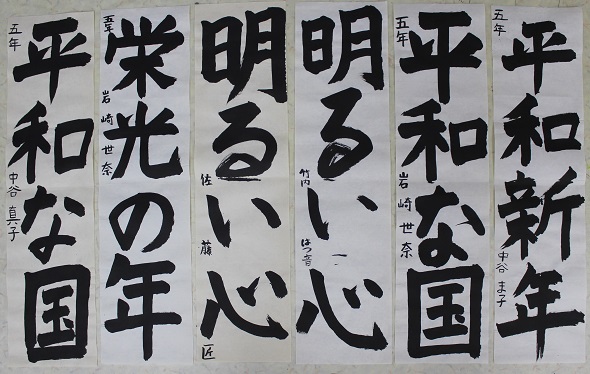 平和新年
五年 中谷 ま子
平和な国
五年 岩崎 世奈
明るい心
竹内 はつ音
明るい心
佐藤 匠
栄光の年
五年 岩崎 世奈
平和な国
五年 中谷 真子